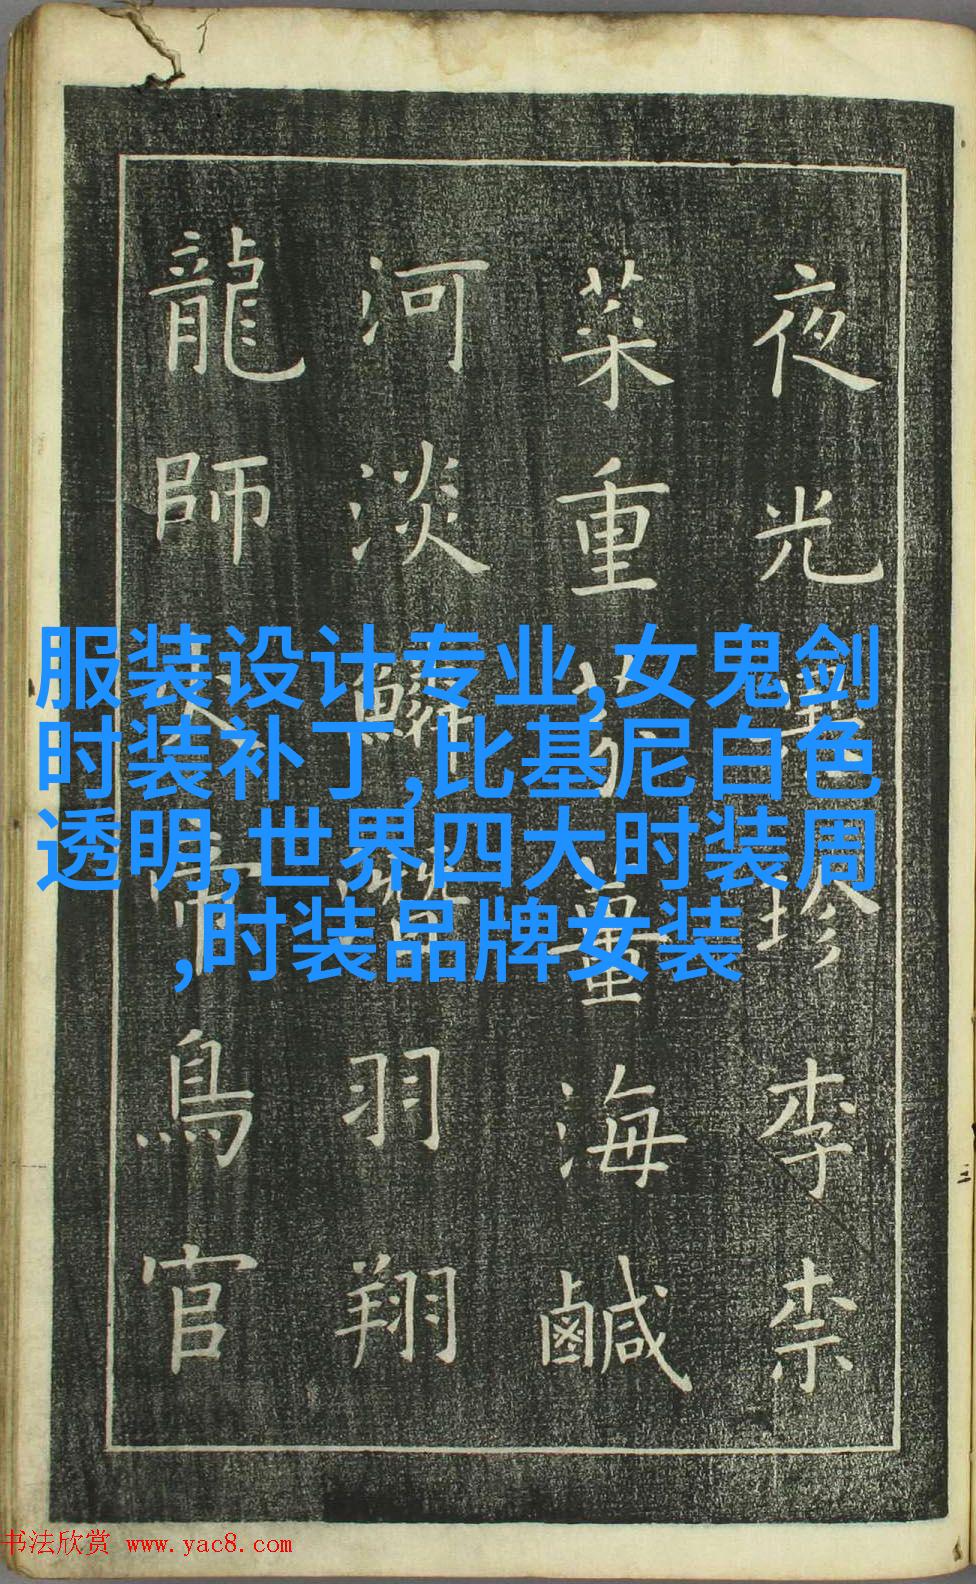 夜光珍李柰
菜重芥薑海鹹
河淡鱗潛羽翔
龍師火帝鳥官
服装设计专业,女鬼剑
时装补丁,比基尼白色
透明,世界四大时装周
,时装品牌女装
书法欣赏 www.yac8.com